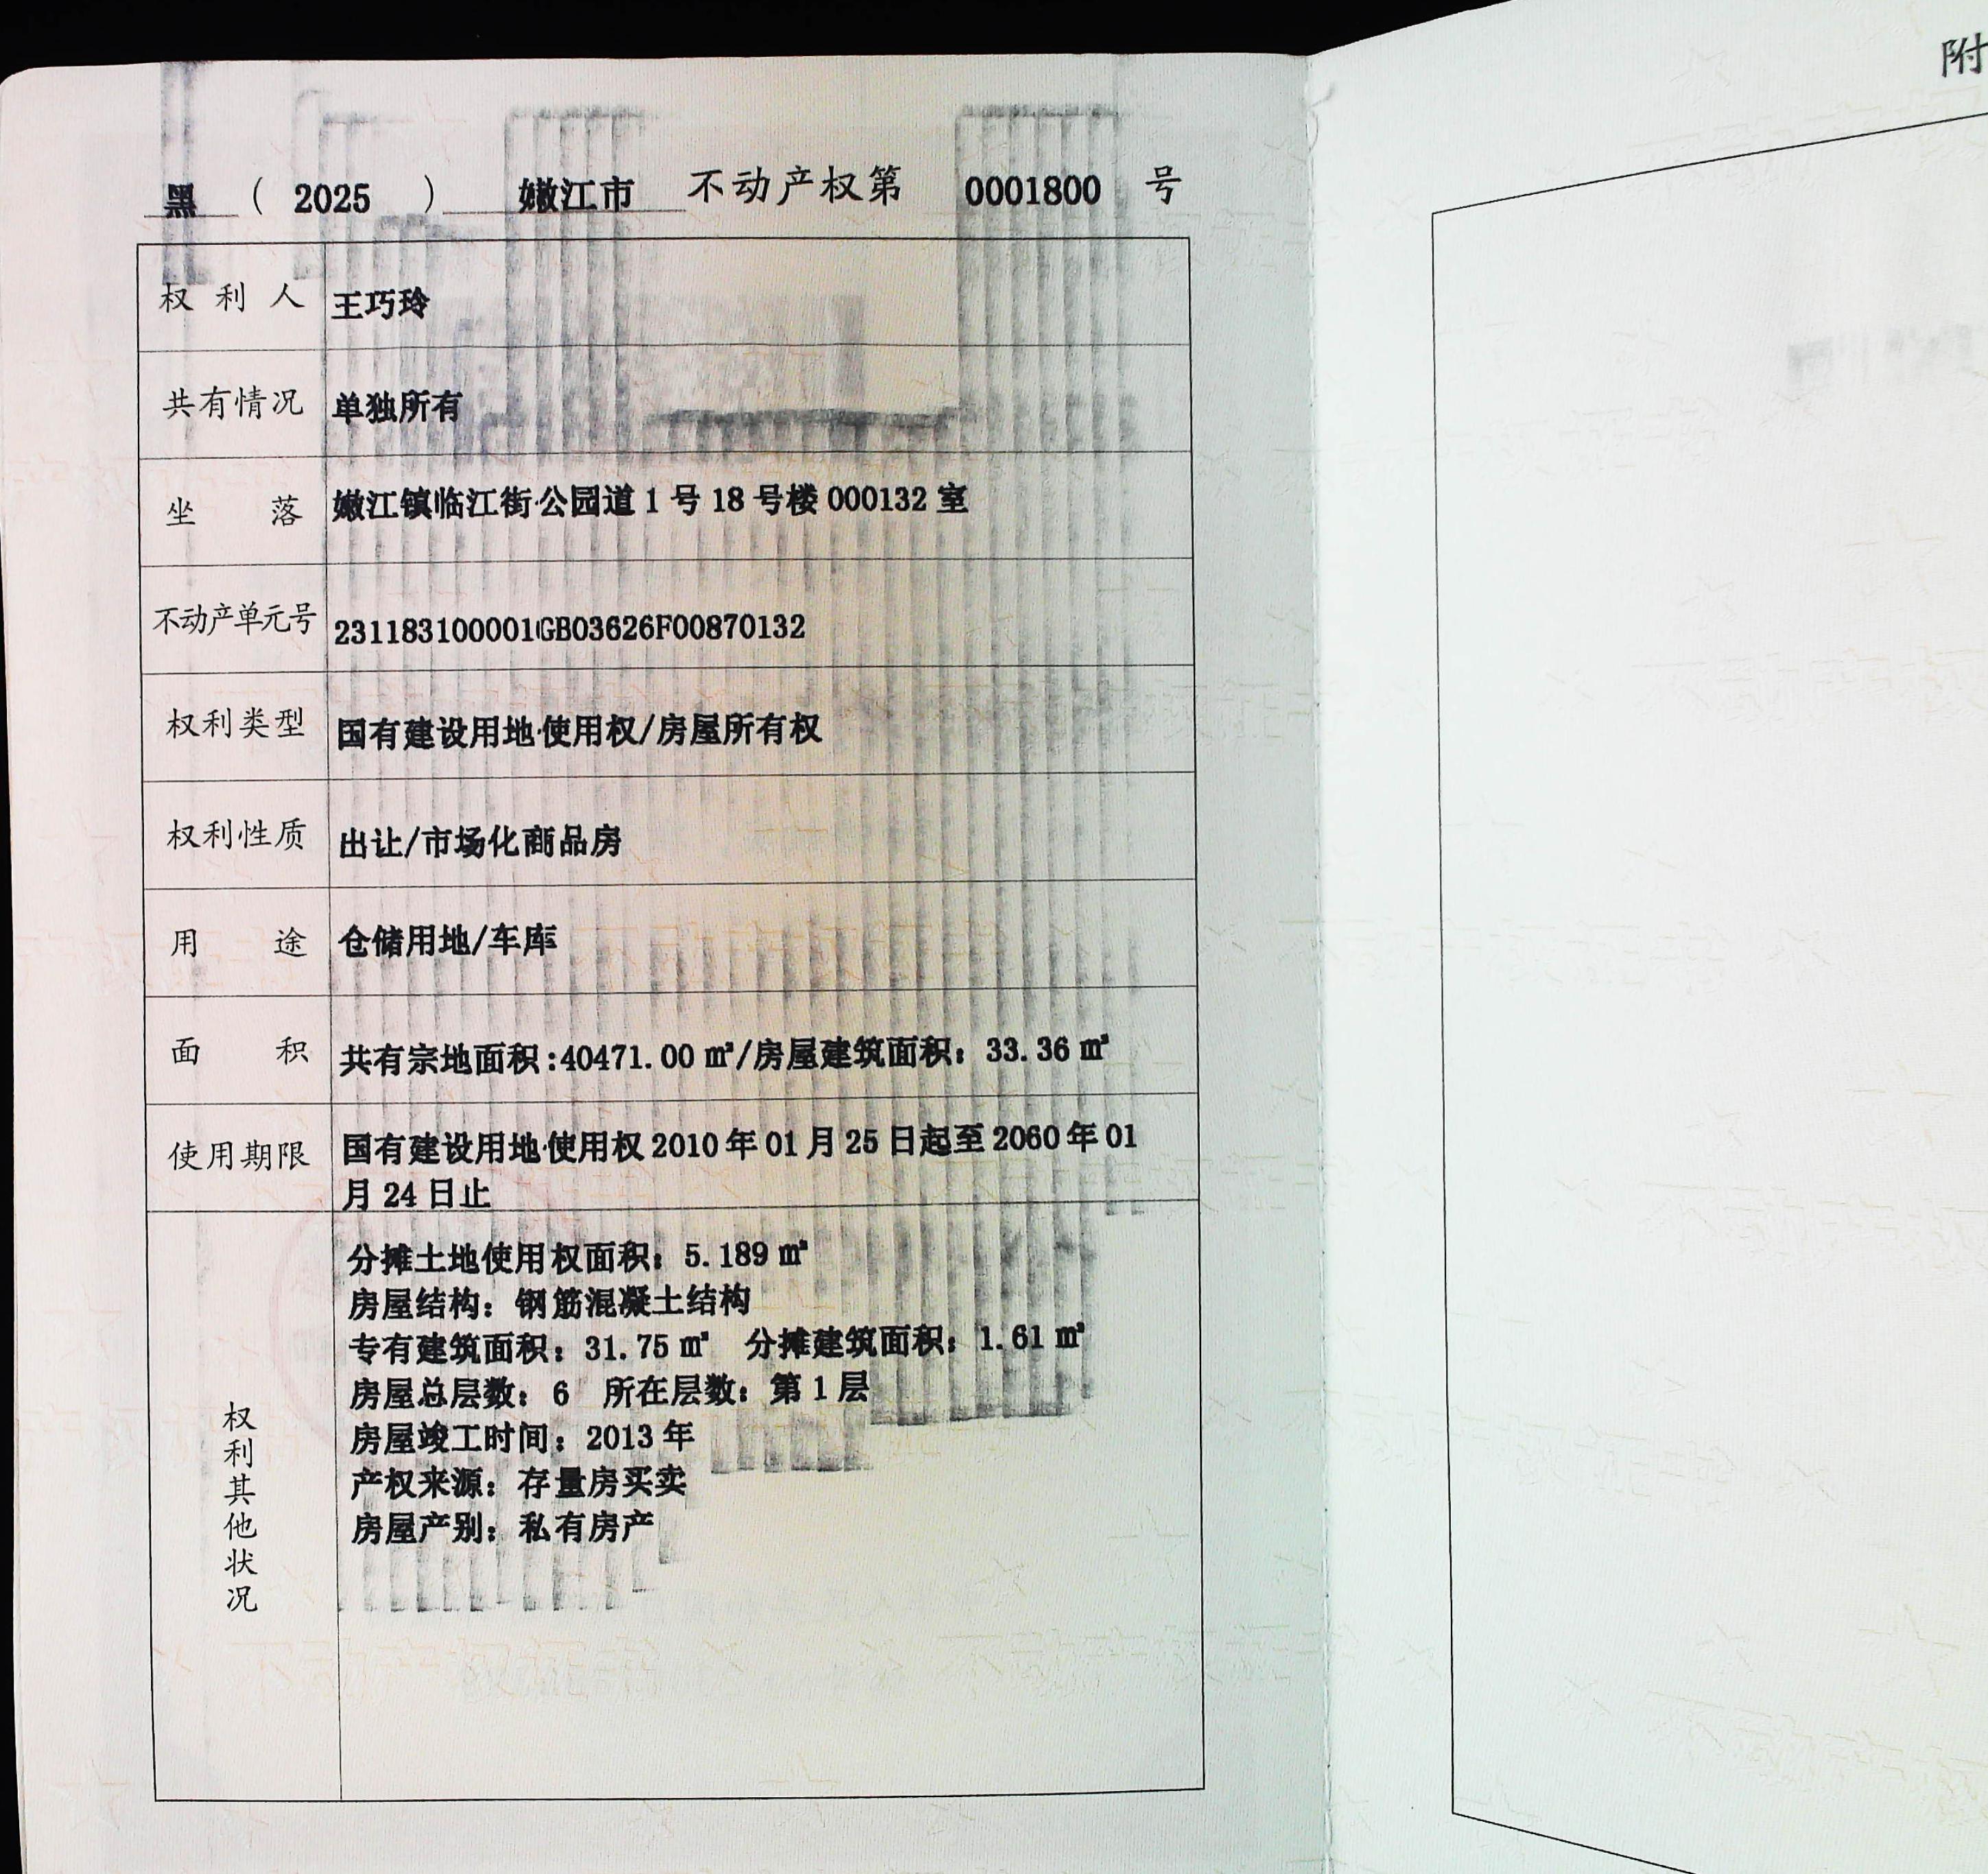 黑 ( 2025 ) 嫩江市 不动产权第 0001800 号
权利人 王巧玲
共有情况 单独所有
坐落 嫩江镇临江街公园道 1 号 18 号楼 000132 室
不动产单元号 231183100001GB03626F00870132
权利类型 国有建设用地使用权/房屋所有权
权利性质 出让/市场化商品房
用途 仓储用地/车库
面积 共有宗地面积:40471.00 ㎡/房屋建筑面积：33.36 ㎡
使用期限 国有建设用地使用权 2010 年 01 月 25 日起至 2060 年 01
月 24 日止
权利其他状况
分摊土地使用权面积：5.189 ㎡
房屋结构：钢筋混凝土结构
专有建筑面积：31.75 ㎡ 分摊建筑面积：1.61 ㎡
房屋总层数：6 所在层数：第 1 层
房屋竣工时间：2013 年
产权来源：存量房买卖
房屋产别：私有房产
附